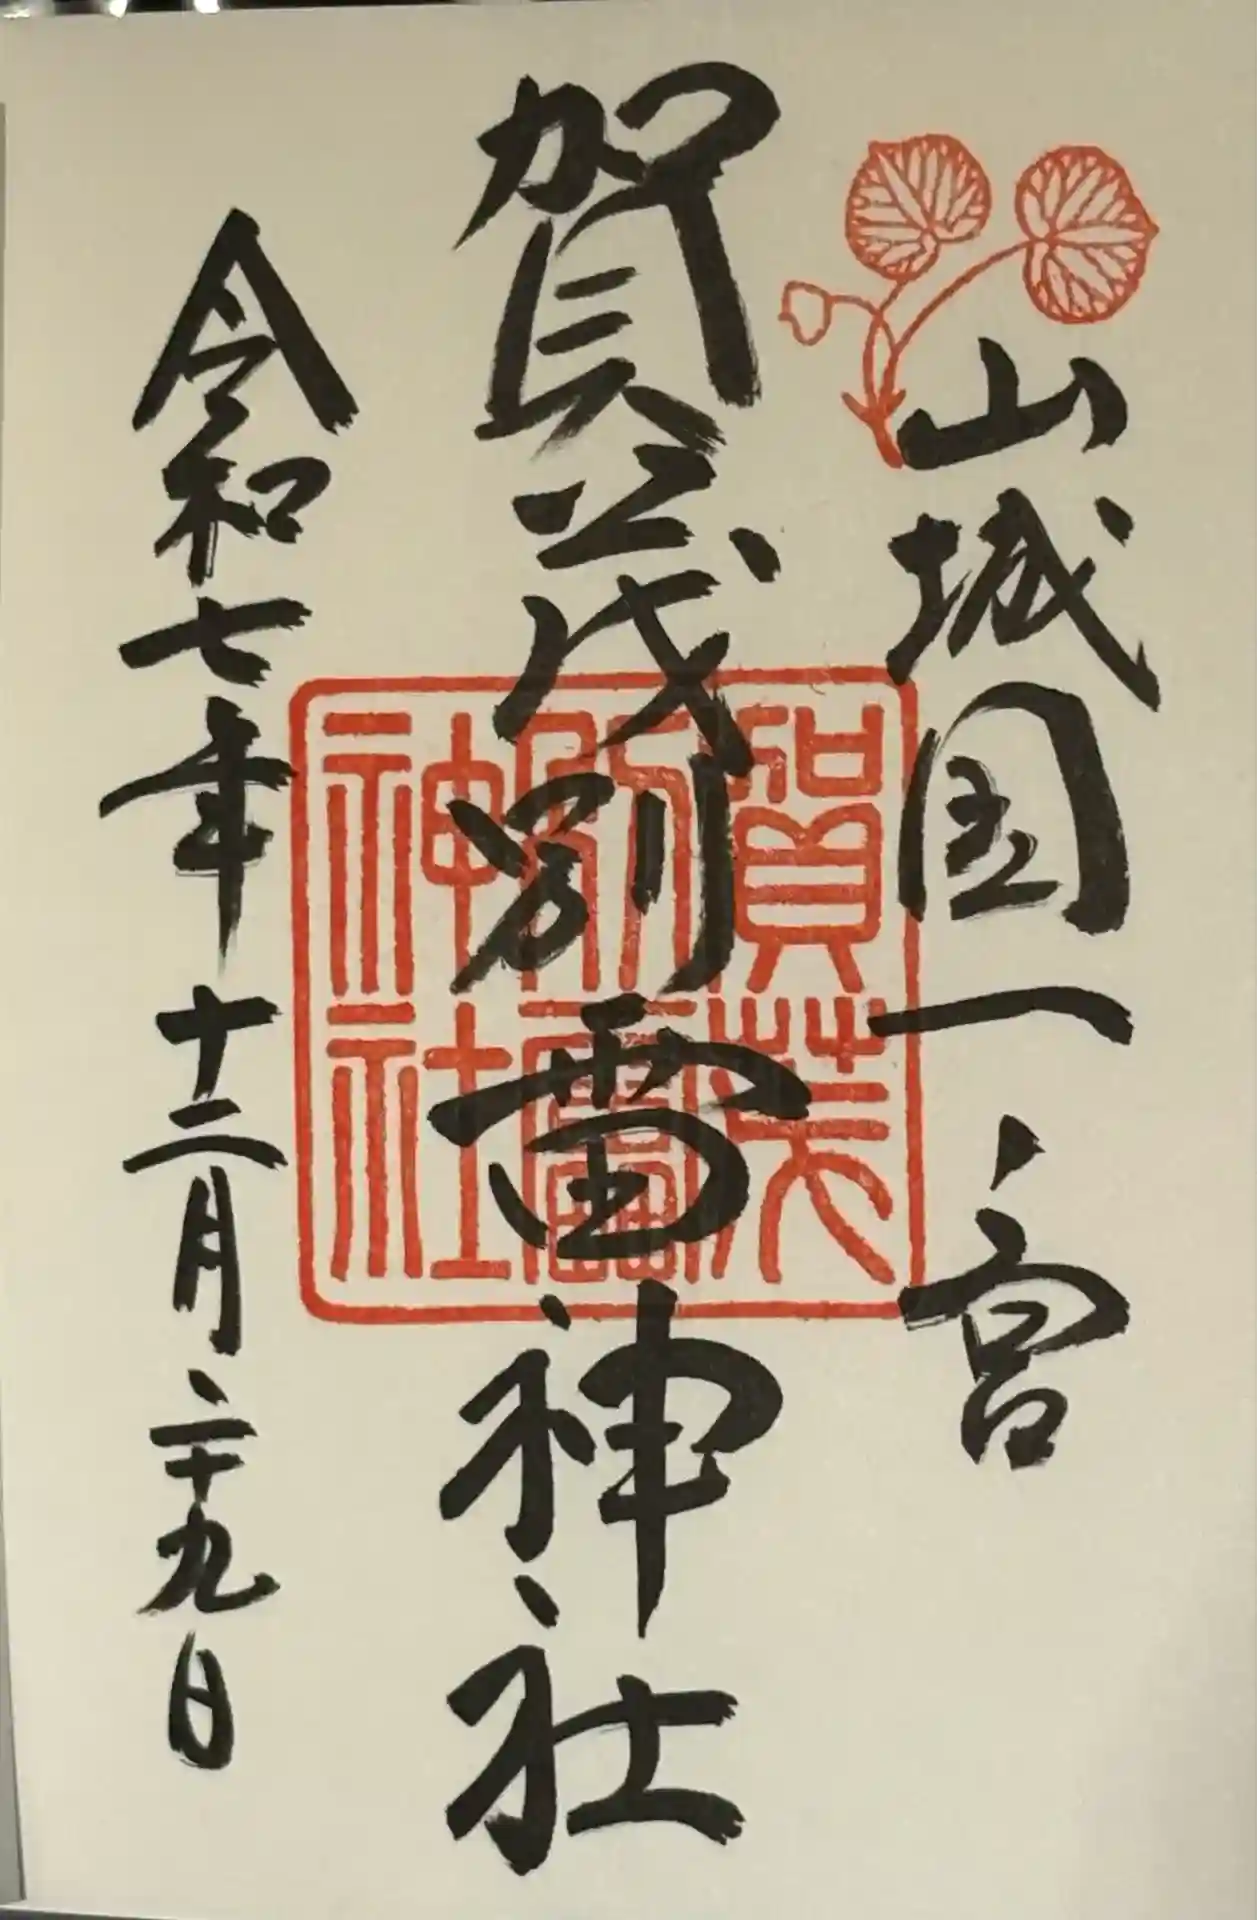 山城国一ノ宮
賀茂別雷神社
令和七年十二月二十九日
賀茂
別雷
神社